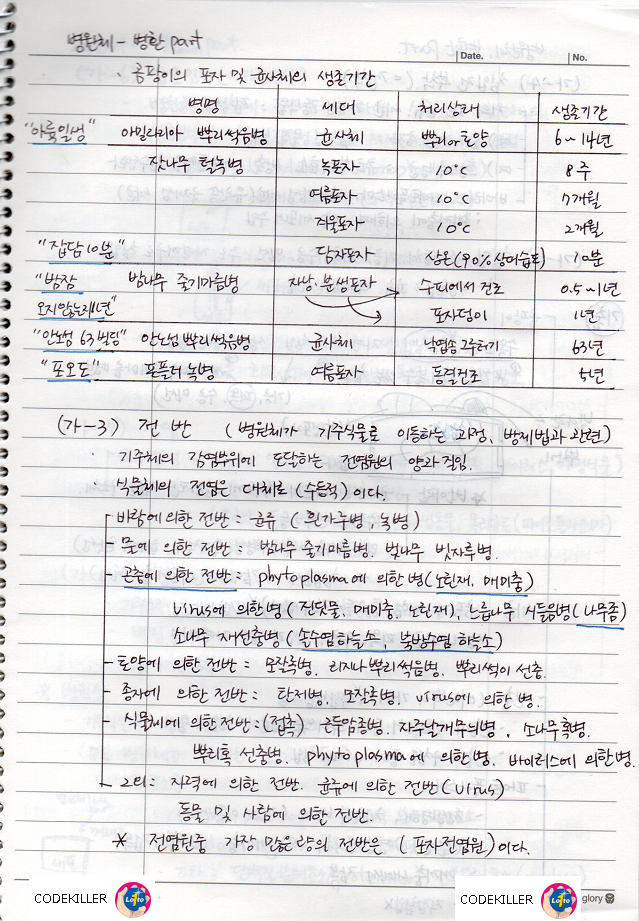 병원체 - 병환 part
Date. No.
· 곰팡이의 포자 및 균사체의 생존기간
병명 세대 처리상태 생존기간
"아뿌일생" 아밀라리아 뿌리썩음병 균사체 뿌리or토양 6~14년
잣나무 털녹병 녹포자 10°C 8주
여름포자 10°C 7개월
겨울포자 10°C 2개월
"잡담10분" 담자포자 상온(90% 상대습도) 10분
"밤잠 밤나무 줄기마름병 자낭·분생포자 수피에서 건조 0.5~1년
오지않는리1년" 포자덩이 1년
"안노성 63빌딩" 안노섬 뿌리썩음병 균사체 낙엽송 그루터기 63년
"포오도" 포플러 녹병 여름포자 동결건조 5년
(가-3) 전반 (병원체가 기주식물로 이동하는 과정, 방제법과 관련)
· 기주체의 감염부위에 도달하는 전염원의 양과 직임.
· 식물체의 전염은 대체로 (수동적)이다.
- 바람에 의한 전반 : 균류 (흰가루병, 녹병)
- 물에 의한 전반 : 밤나무 줄기마름병. 벚나무 빗자루병.
- 곤충에 의한 전반 : phytoplasma에 의한 병 (노린재, 매미충)
virus에 의한병 (진딧물, 매미충, 노린재), 느릅나무 시들음병 (나무좀)
소나무 재선충병 (솔수염하늘소, 북방수염 하늘소)
- 토양에 의한 전반 : 모잘록병. 리지나뿌리썩음병. 뿌리썩이 선충.
- 종자에 의한 전반 : 탄저병. 모잘록병. virus에 의한 병.
- 식물체에 의한 전반 : (접촉) 근두암종병. 자주날개무늬병, 소나무혹병.
뿌리혹 선충병. phytoplasma에 의한병. 바이러스에 의한병.
- 그외 : 자력에 의한 전반. 균류에 의한 전반 (virus)
동물 및 사람에 의한 전반.
* 전염원중 가장 많은 량의 전반은 (포자전염원)이다.
glory
CODEKILLER Lotto CODEKILLER Lotto